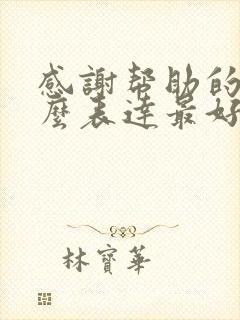 感謝帮助的
麼表達最好
林寶華